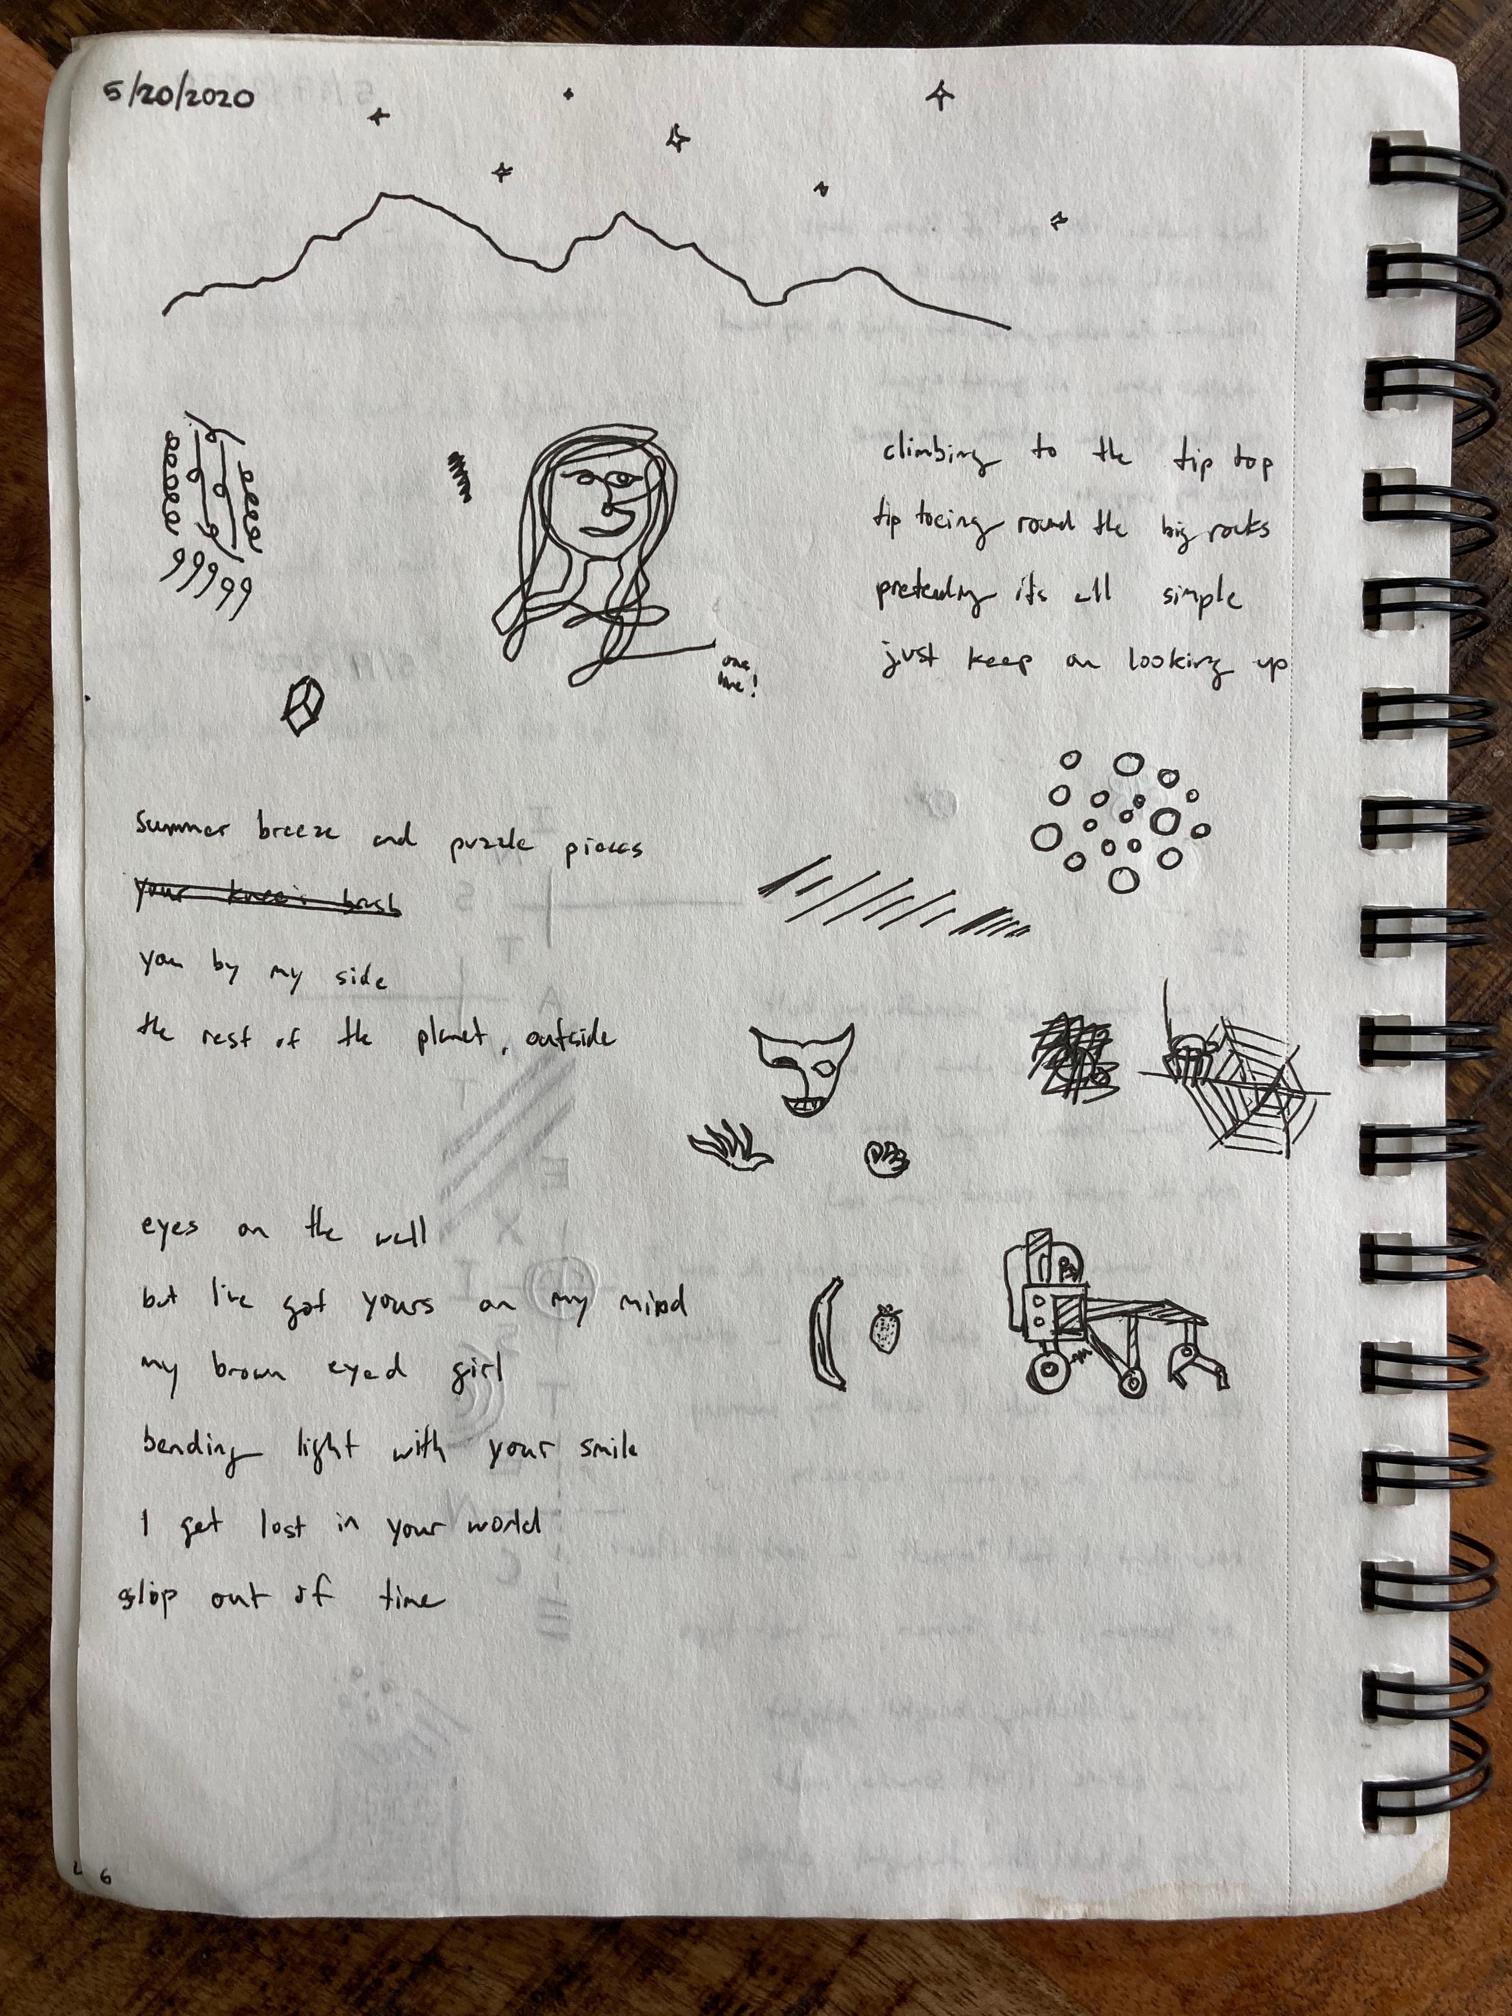 5/20/2020
climbing to the tip top
tip toeing round the big rocks
pretending its all simple
just keep on looking up
one line!
Summer breeze and puzzle pieces
your knees brush
you by my side
the rest of the planet, outside
eyes on the wall
but I've got yours on my mind
my brown eyed girl
bending light with your smile
I get lost in your world
slip out of time
6